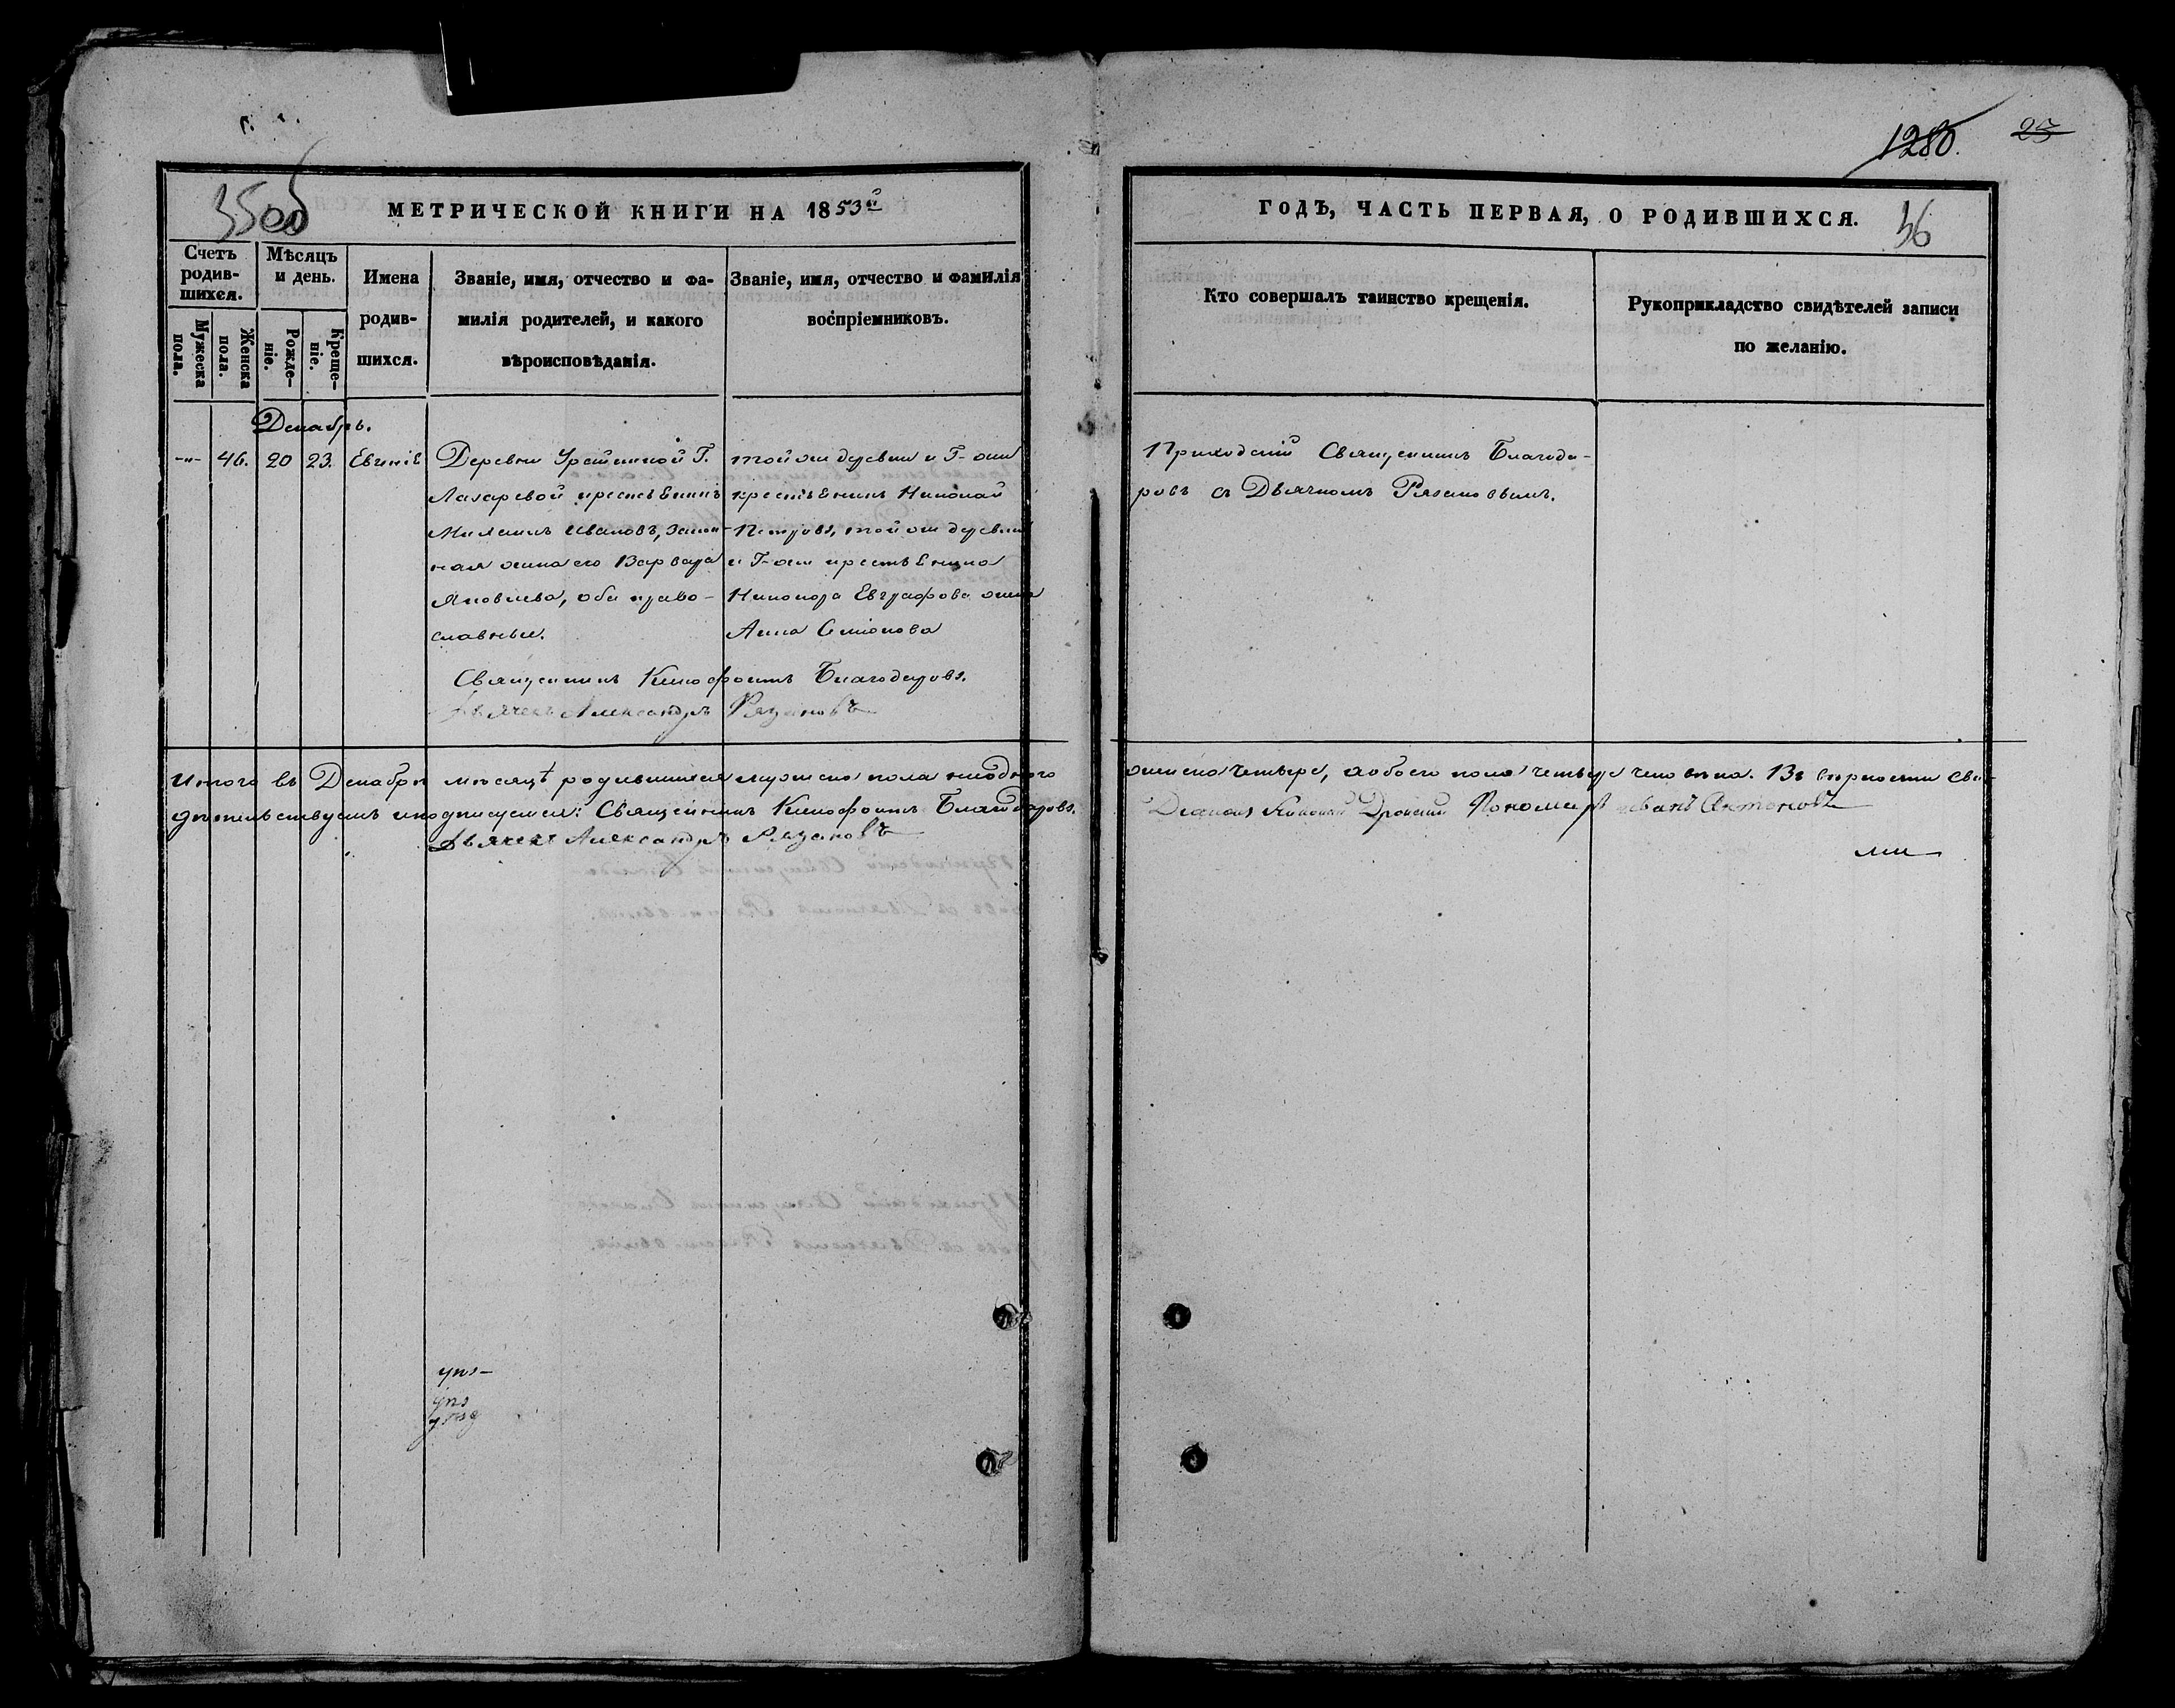 1280. 23
35об
МЕТРИЧЕСКОЙ КНИГИ НА 1853й
ГОДЪ, ЧАСТЬ ПЕРВАЯ, О РОДИВШИХСЯ.
36
Счетъ родив-шихся.
Мужеска пола.
Женска пола.
Мѣсяцъ и день.
Рожде-ніе.
Креще-ніе.
Имена
родив-
шихся.
Званіе, имя, отчество и фа-
милія родителей, и какого
вѣроисповѣданія.
Званіе, имя, отчество и фамилія
воспріемниковъ.
Кто совершалъ таинство крещенія.
Рукоприкладство свидѣтелей записи
по желанію.
Декабрь.
-"- 46. 20 23. Евгенія
Деревни Г.
Лазаревой крестьянинъ
Ивановъ, закон-
ная жена его Варвара
Яковлева, оба право-
славные.
той же деревни и Г-жи
крестьянинъ Николай
Петровъ, той же деревни
и Г-жи крестьянина
Никонора Евграфова жена
Анна Семіонова
Приходскій Священникъ Благода-
ровъ съ Дьячкомъ Рязановымъ.
Священникъ Ксенофонтъ Благодаровъ.
Дьячекъ Александръ Рязановъ
Итого въ Декабрѣ мѣсяцѣ родившихся мужеска пола ниодного
женска четыре, а обоего пола четыре человѣка. Въ верности сви-
дѣтельствуемъ и подписуемся: Священникъ Ксенофонтъ Благодаровъ.
Дьячекъ Александръ Рязановъ
Диаконъ Пономарь Иванъ Антоновъ